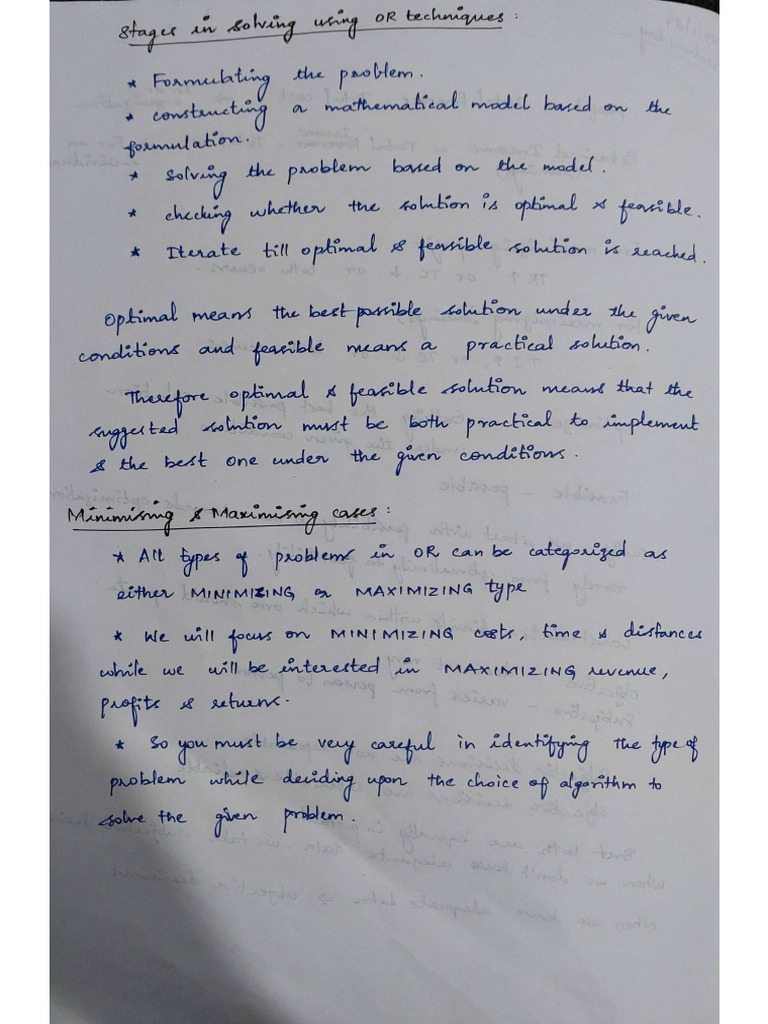 Stages in solving using OR techniques:
* Formulating the problem.
* constructing a mathematical model based on the
formulation.
* solving the problem based on the model.
* checking whether the solution is optimal & feasible.
* Iterate till optimal & feasible solution is reached.
Optimal means the best possible solution under the given
conditions and feasible means a practical solution.
Therefore optimal & feasible solution means that the
suggested solution must be both practical to implement
& the best one under the given conditions.
Minimising & Maximising cases:
* All types of problems in OR can be categorized as
either MINIMIZING or MAXIMIZING type
* We will focus on MINIMIZING costs, time & distances
while we will be interested in MAXIMIZING revenue,
profits & returns.
* So you must be very careful in identifying the type of
problem while deciding upon the choice of algorithm to
solve the given problem.